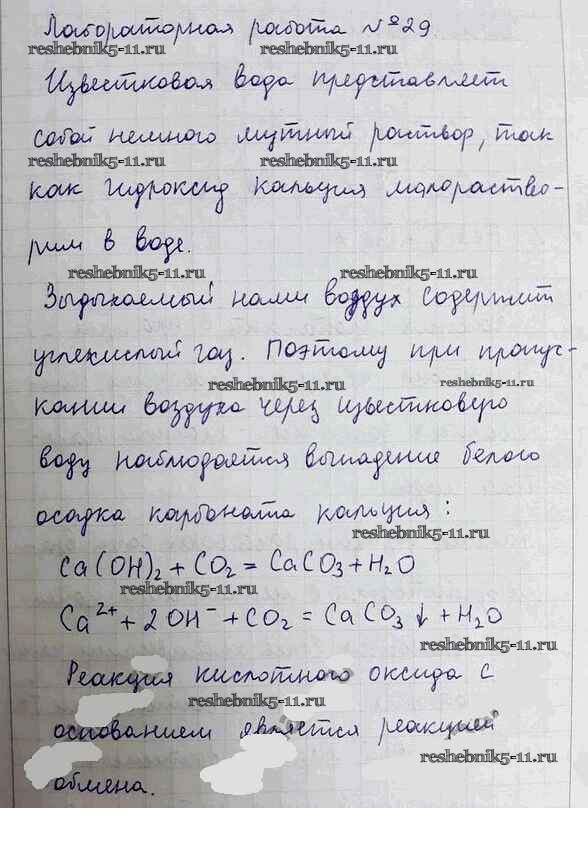 Лабораторная работа №29.
reshebnik5-11.ru reshebnik5-11.ru
Известковая вода представляет
собой немного мутный раствор, так
reshebnik5-11.ru reshebnik5-11.ru
как гидроксид кальция малораство-
рим в воде.
reshebnik5-11.ru reshebnik5-11.ru
Выдыхаемый нами воздух содержит
углекислый газ. Поэтому при пропус-
reshebnik5-11.ru reshebnik5-11.ru
кании воздуха через известковую
воду наблюдается выпадение белого
осадка карбоната кальция:
reshebnik5-11.ru
Ca(OH)₂ + CO₂ = CaCO₃ + H₂O
reshebnik5-11.ru
Ca²⁺ + 2OH⁻ + CO₂ = CaCO₃↓ + H₂O
Реакция кислотного оксида с
reshebnik5-11.ru
основанием является реакцией
reshebnik5-11.ru
обмена.
reshebnik5-11.ru